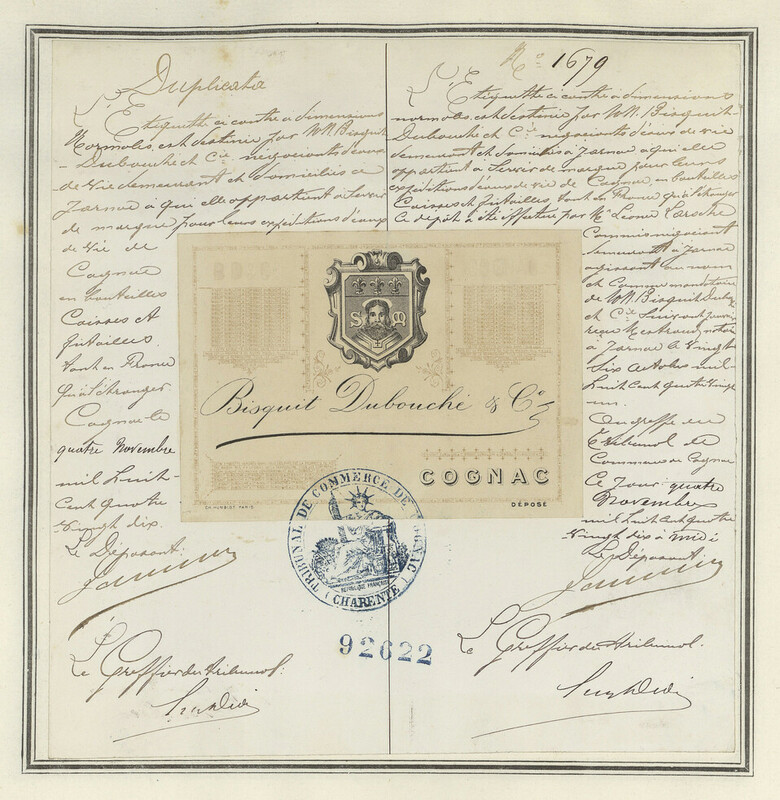 Duplicata
L'Etiquette ci contre à dimensions
Normales, est destinée par MM. Bisquit
Dubouché et Cie négociants d'eaux-
de-Vie demeurant et domiciliés à
Jarnac à qui elle appartient à Servir
de marque pour leurs expéditions d'eaux
de Vie de
Cognac
en bouteilles
Caisses et
futailles
tant en France
qu'à l'étranger.
Cognac le
quatre Novembre
mil huit
Cent quatre
Vingt dix.
Le Déposant:
Le Greffier du tribunal:
No 1679
L'Etiquette ci contre à dimensions
normales, est destinée par MM. Bisquit
Dubouché et Cie négociants d'eaux de vie
demeurant et domiciliés à Jarnac à qui elle
appartient à Servir de marque pour leurs
expéditions d'eaux de vie de Cognac, en bouteilles
Caisses et futailles tant en France qu'à l'étranger
Ce dépôt a été effectué par Mr Léonce Laroche
Commis négociant
demeurant à Jarnac
agissant au nom
et Comme mandataire
de MM. Bisquit Dubouché
et Cie Suivant pouvoir
reçu notaire
à Jarnac le Vingt
Six octobre mil
huit cent quatre Vingt
Au greffe du
Tribunal de
Commerce de Cognac
Ce jour quatre
Novembre
mil huit cent quatre
Vingt dix à midi
Le Déposant
Le Greffier du tribunal.
S M
Bisquit Dubouché & Co
COGNAC
CH. HUMBLOT PARIS
DÉPOSÉ
TRIBUNAL DE COMMERCE DE COGNAC
RÉPUBLIQUE FRANÇAISE
(CHARENTE)
92622